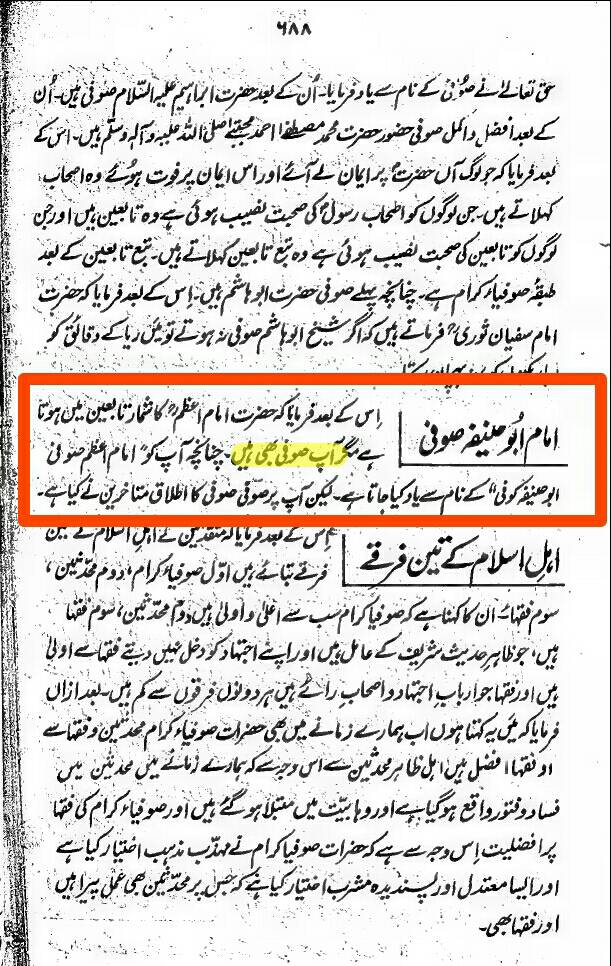 ۶۸۸
حق تعالےٰ نے صوفی کے نام سے یاد فرمایا۔ اُن کے بعد حضرت ابراہیم علیہ السّلام صوفی ہیں۔ اُن
کے بعد افضل و اکمل صوفی حضور حضرت محمد مصطفےٰ احمد مجتبےٰ صلی اللہ علیہ و آلہ وسلّم ہیں۔ اس کے
بعد فرمایا کہ جو لوگ آں حضرتؐ پر ایمان لے آئے اور اس ایمان پر فوت ہوئے وہ اصحاب
کہلاتے ہیں۔ جن لوگوں کو اصحاب رسولؐ کی صحبت نصیب ہوئی ہے وہ تابعین ہیں اور جن
لوگوں کو تابعین کی صحبت نصیب ہوئی ہے وہ تبع تابعین کہلاتے ہیں۔ تبع تابعین کے بعد
طبقۂ صوفیاء کرام ہے۔ چنانچہ پہلے صوفی حضرت ابو ہاشم ہیں۔ اِس کے بعد فرمایا کہ حضرت
امام سفیان ثوریؒ فرماتے ہیں کہ اگر شیخ ابو ہاشم صوفی نہ ہوتے تو میں ریا کے دقائق کو
امام ابُو حنیفہ صوفی
اِس کے بعد فرمایا کہ حضرت امام اعظمؒ کا شمار تابعین میں ہوتا
ہے مگر آپ صوفی بھی ہیں۔ چنانچہ آپ کو "امام اعظم صوفی
ابو حنیفہ کوفی" کے نام سے یاد کیا جاتا ہے۔ لیکن آپ پر صوفی صوفی کا اطلاق متاخرین نے کیا ہے۔
اہلِ اسلام کے تین فرقے
اِس کے بعد فرمایا کہ متقدمین نے اہلِ اسلام کے تین
فرقے بتائے ہیں اوّل صوفیاء کرام، دوم محدثین،
سوم فقہاء۔ ان کا کہنا ہے کہ صوفیاء کرام سب سے اعلیٰ و اولیٰ ہیں دوم محدّثین، سوم فقہا
ہیں، جو ظاہر حدیث شریف کے عامل ہیں اور اپنے اجتہاد کو دخل نہیں دیتے فقہا سے اولیٰ
ہیں اور فقہا جو اربابِ اجتہاد و اصحابِ رائے ہیں ہر دونوں فرقوں سے کم ہیں۔ بعد ازاں
فرمایا کہ میں یہ کہتا ہوں اب ہمارے زمانے میں بھی حضرات صوفیاء کرام محدثین و فقہا سے
افضل ہیں اہل ظاہر محدثین سے اس وجہ سے کہ ہمارے زمانے میں محدثین میں
فساد و فتور واقع ہوگیا ہے اور وہابیّت میں مبتلا ہو گئے ہیں اور صوفیاء کرام کی فقہا
پر افضلیت اِس وجہ سے ہے کہ حضرات صوفیا کرام نے مہذّب مذہب اختیار کیا ہے
اور ایسا معتدل اور پسندیدہ مشرب اختیار کیا ہے کہ جس پر محدّثین بھی عمل پیرا ہیں
اور فقہا بھی۔